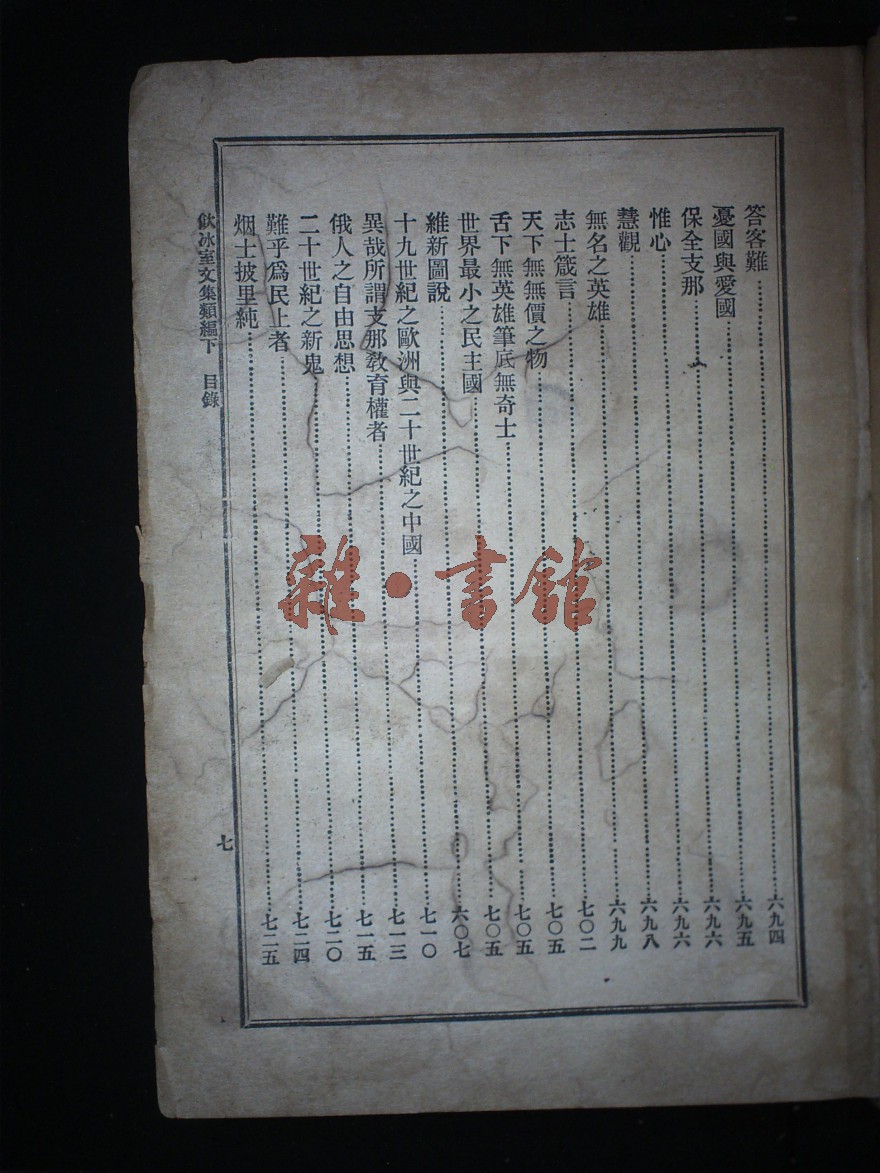 答客難……六九四
憂國與愛國……六九五
保全支那……六九六
惟心……六九六
慧觀……六九八
無名之英雄……六九九
志士箴言……七〇二
天下無無價之物……七〇五
舌下無英雄筆底無奇士……七〇五
世界最小之民主國……七〇五
維新圖說……六〇七
十九世紀之歐洲與二十世紀之中國……七一〇
異哉所謂支那敎育權者……七一三
俄人之自由思想……七一五
二十世紀之新鬼……七二〇
難乎爲民上者……七二四
烟士披里純……七二五
飲冰室文集類編下 目錄 七
雜·書館